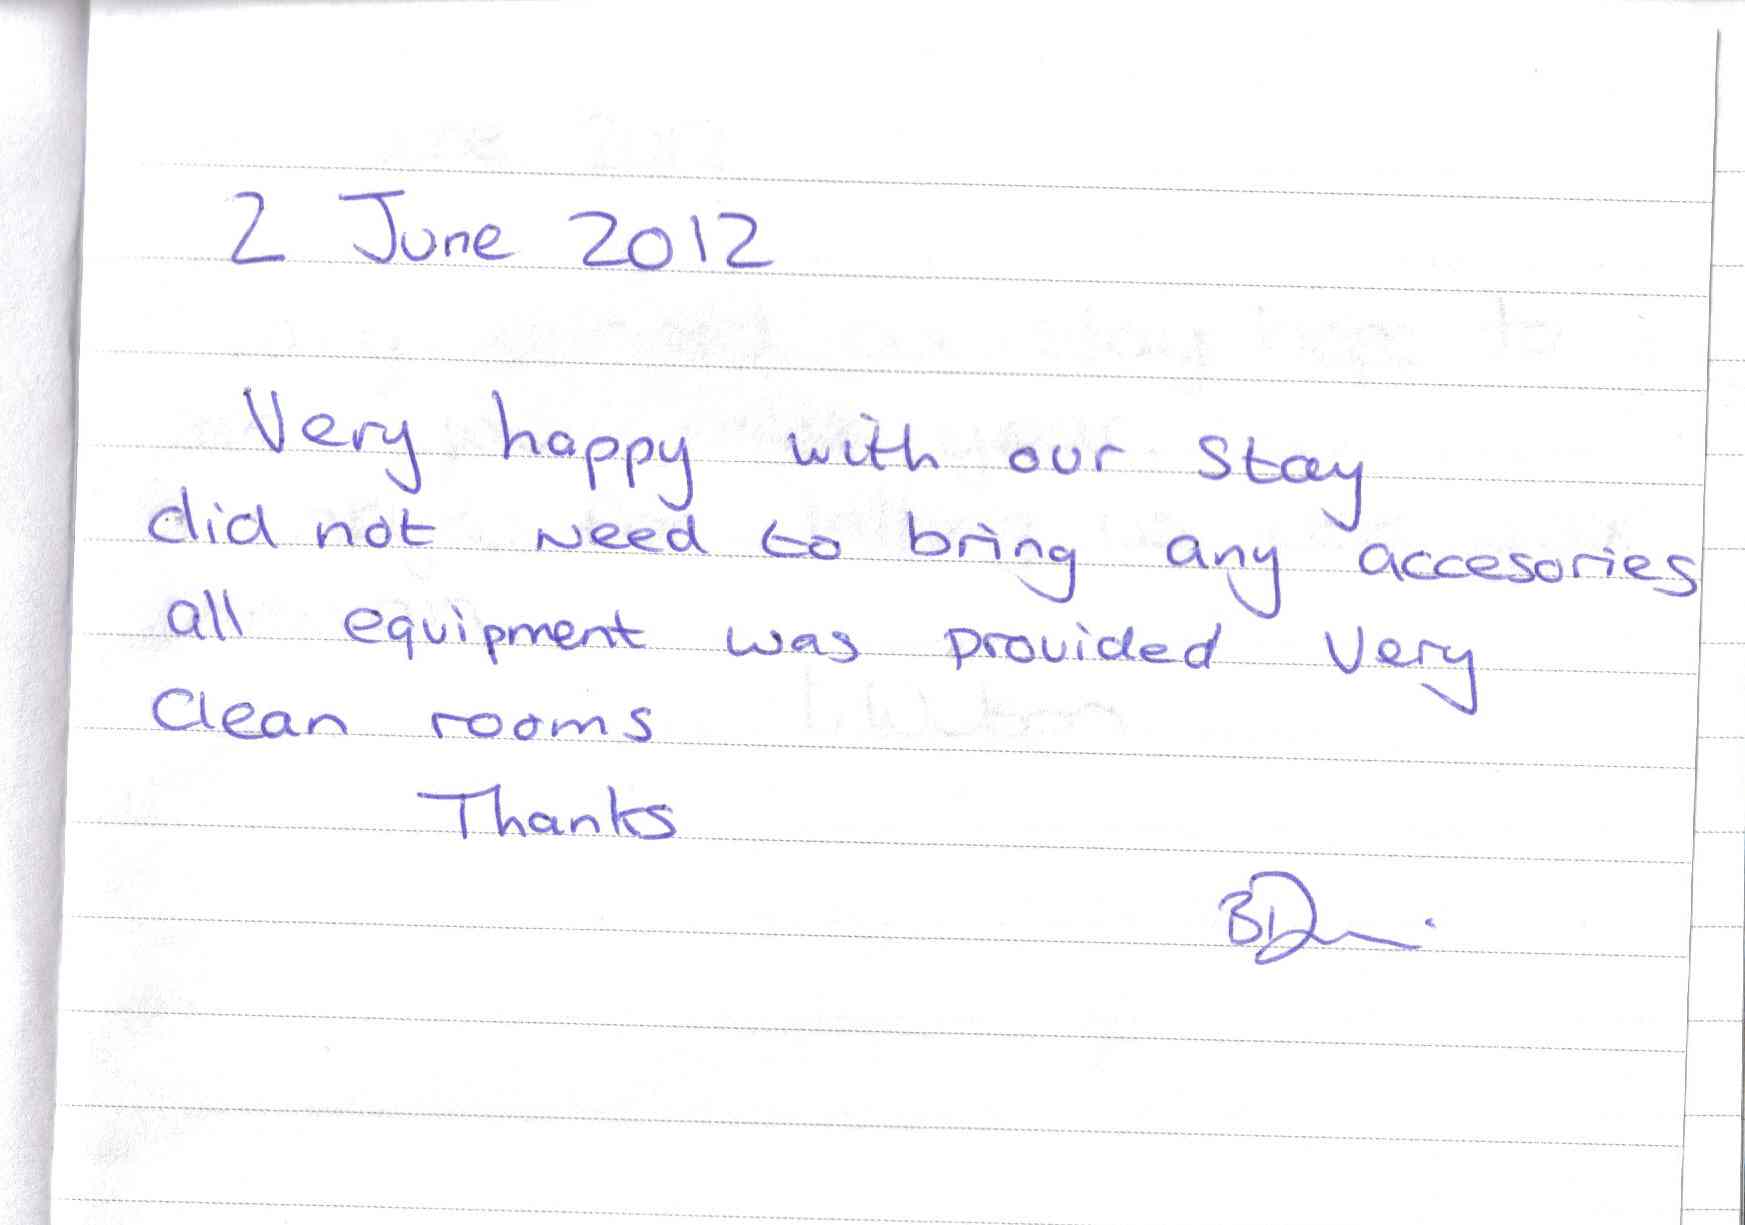 2 June 2012
Very happy with our stay
did not need to bring any accesories
all equipment was provided very
clean rooms
Thanks